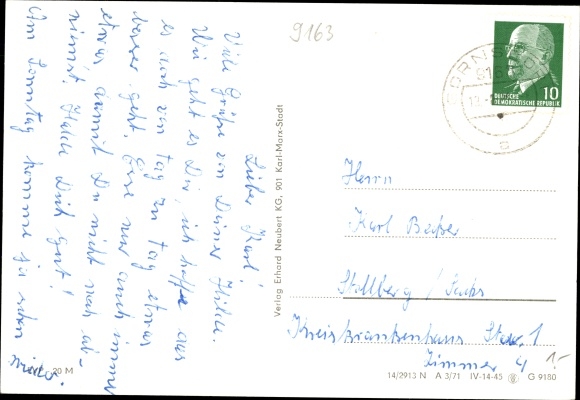 9163
Lieber Karl!
Viele Grüße von Deiner Hilde.
Wie geht es Dir, ich hoffe das
es auch von Tag zu Tag etwas
besser geht. Esse nur auch immer
etwas, damit Du nicht noch ab-
nimmst. Halte Dich gut!
Am Sonntag komme ja schon
wieder.
20 M
Verlag Erhard Neubert KG, 901 Karl-Marx-Stadt
10
DEUTSCHE
DEMOKRATISCHE REPUBLIK
Herrn
Karl
Stollberg / Sachs
Kreiskrankenhaus Stat. 1
Zimmer 4
1.-
14/2913 N A 3/71 IV-14-45 G 9180